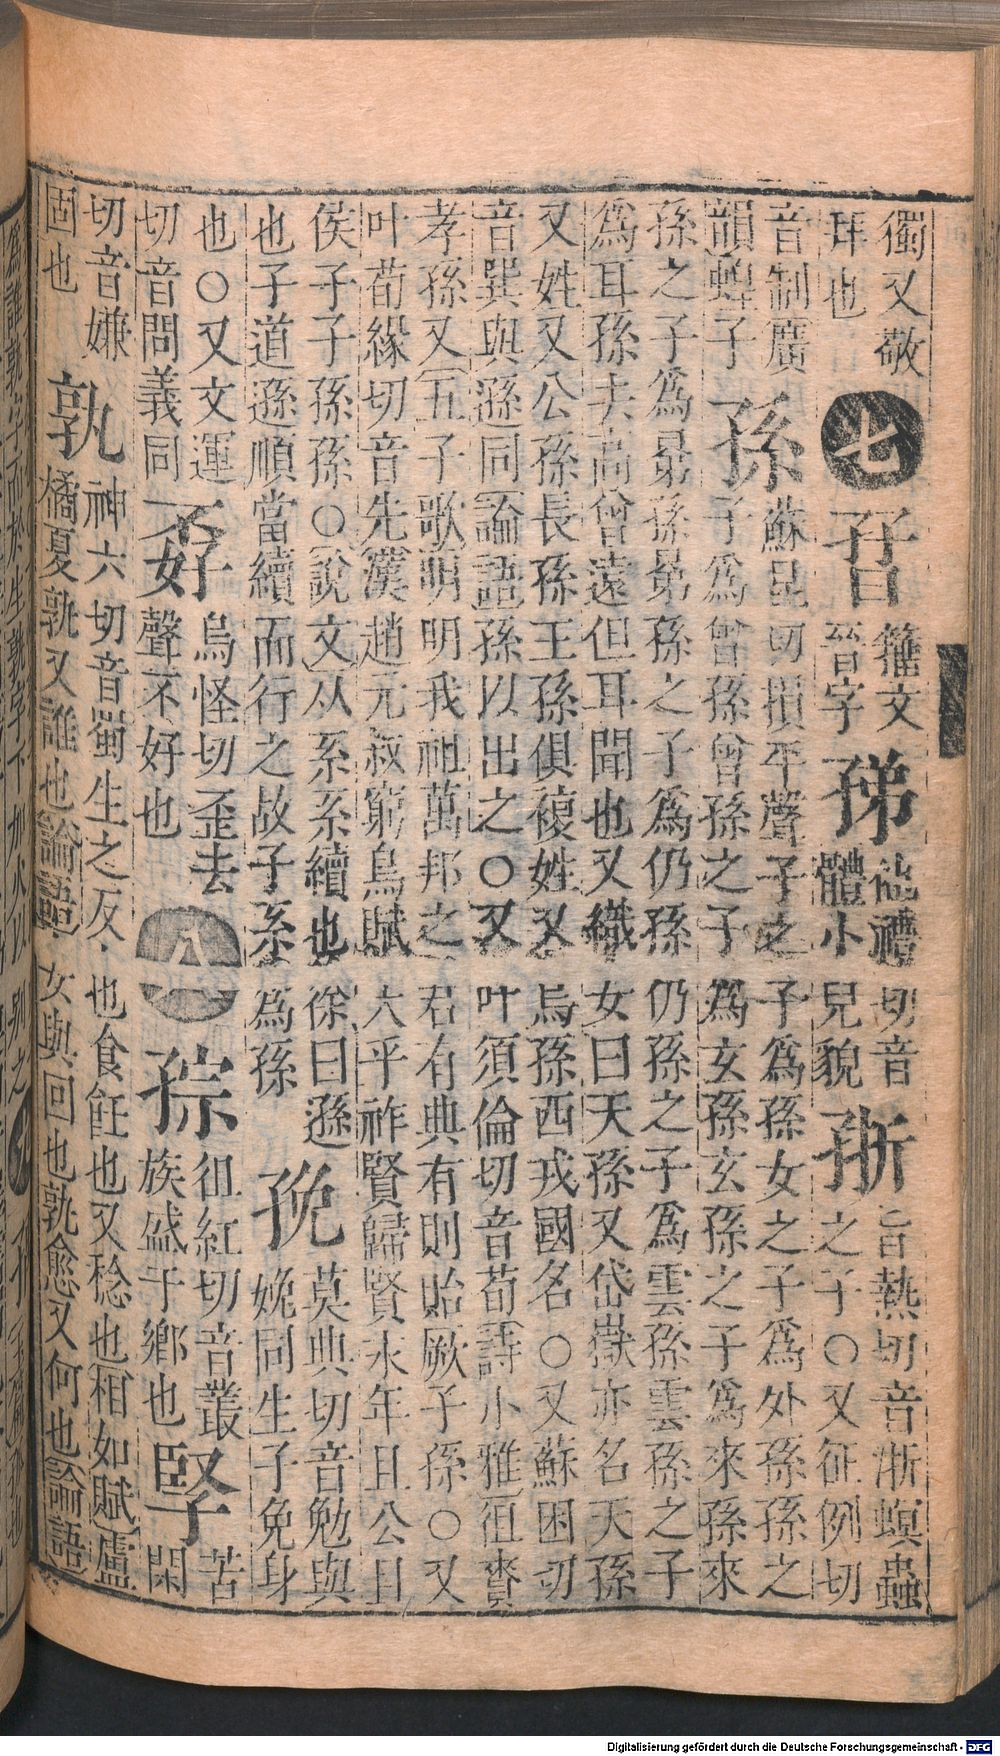 獨又敬
耳也
七
𣉙
籀文
晉字
𡥩
他禮切音
體小兒貌
𡥶
旨熱切音浙螟蟲
之子○又征例切
音制廣
韻蝗子
孫
蘇昆切損平聲子之子爲孫女之子爲外孫孫之
子爲曾孫曾孫之子爲玄孫玄孫之子爲來孫來
孫之子爲晜孫晜孫之子爲仍孫仍孫之子爲雲孫雲孫之子
爲耳孫去高曾遠但耳聞也又織女曰天孫又岱嶽亦名天孫
又姓又公孫長孫王孫俱複姓又烏孫西戎國名○又蘇困切
音巽與遜同論語孫以出之○又叶須倫切音荀詩小雅徂賚
孝孫又五子歌明明我祖萬邦之君有典有則貽厥子孫○又
叶荀緣切音先漢趙元叔窮鳥賦天乎祚賢歸賢永年且公且
侯子子孫孫○說文从系系續也徐曰遜
也子道遜順當續而行之故子系爲孫
㝃
莫典切音勉與
娩同生子免身
也○又文運
切音問義同
孬
烏怪切歪去
聲不好也
八
孮
徂紅切音叢
族盛于鄉也
孯
苦
閑
切音嫌
固也
孰
神六切音蜀生之反也食飪也又稔也相如賦盧
橘夏孰又誰也論語女與回也孰愈又何也論語
Digitalisierung gefördert durch die Deutsche Forschungsgemeinschaft - DFG